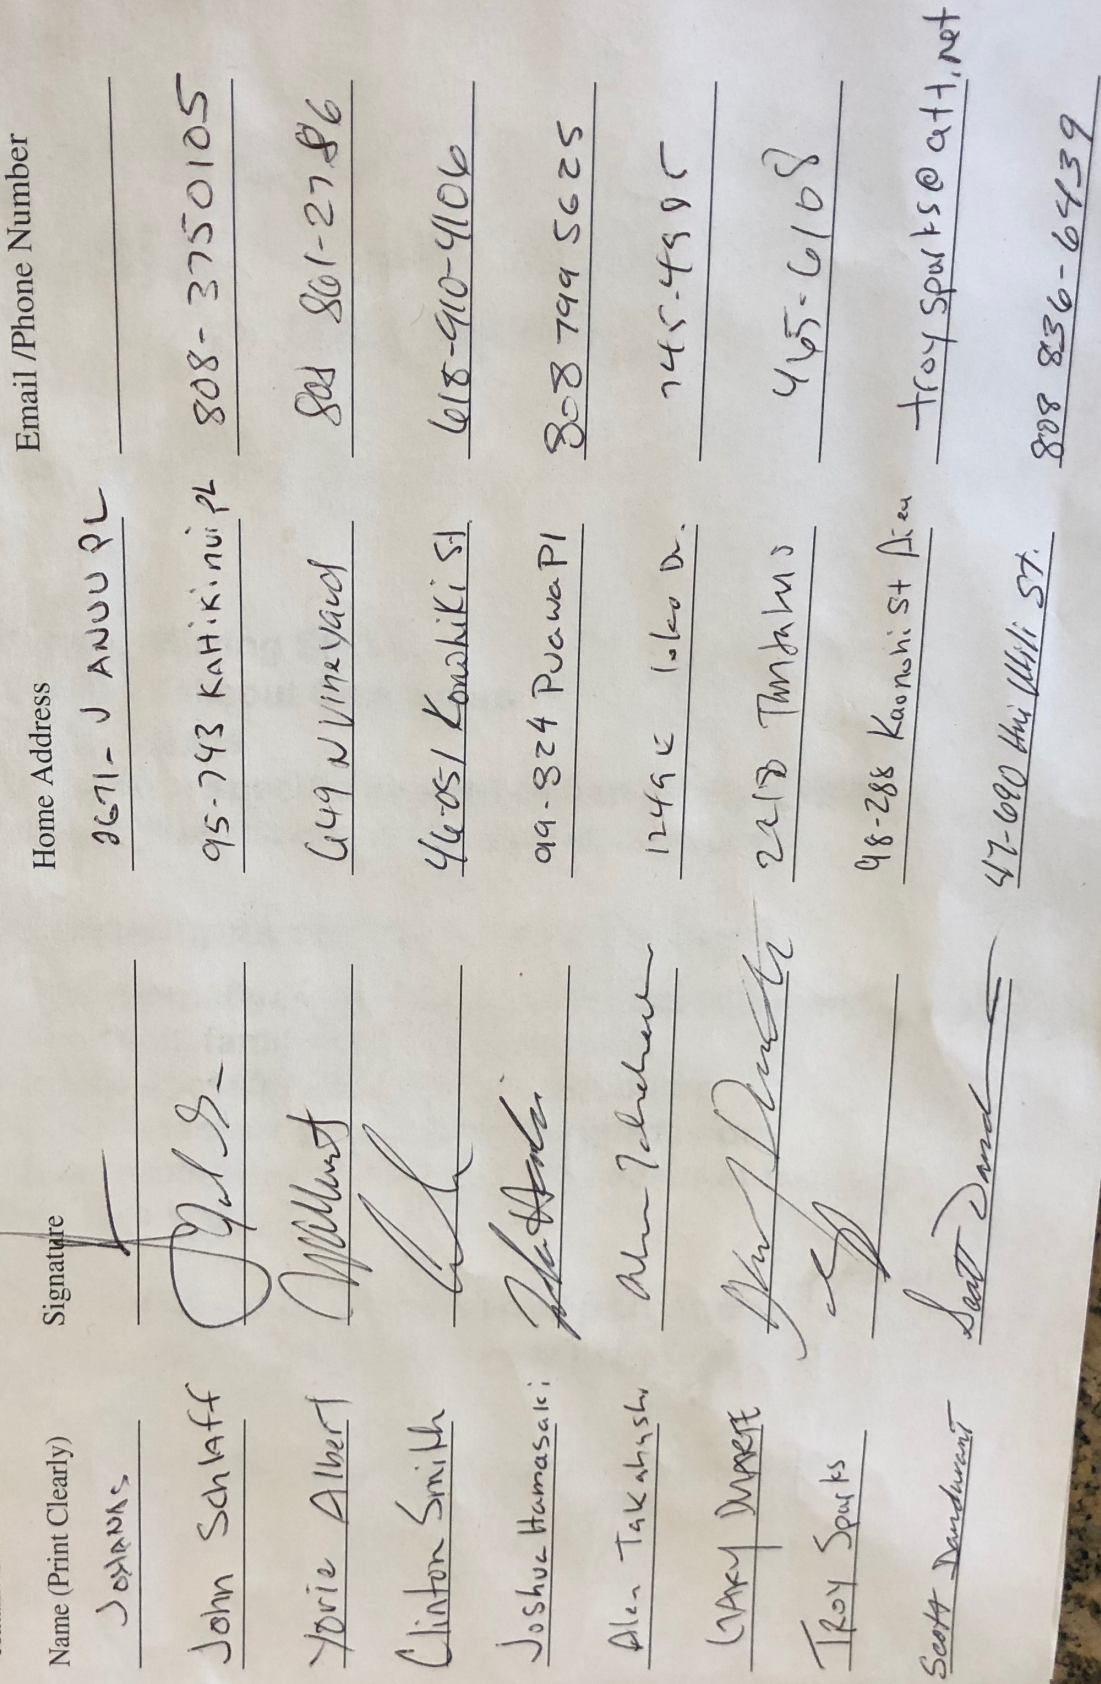 Name (Print Clearly) Signature Home Address Email /Phone Number
JOHANAS 2671- J ANUU PL
John Schlaff 95-743 KAHIKINUI PL 808-3750105
Yorie Albert 649 N Vineyard 808 861-2786
Clinton Smith 46-051 Konohiki St 618-910-4106
Joshua Hamasaki 99-824 Puawa Pl 808 799 5625
Alan Takahashi 1249 Loko Dr.
GARY DUARTE 2218 465-6108
TROY Sparks 98-288 Kaonohi St Aiea troysparks@att.net
Scott Dandurant 47-690 Hui St. 808 836-6439